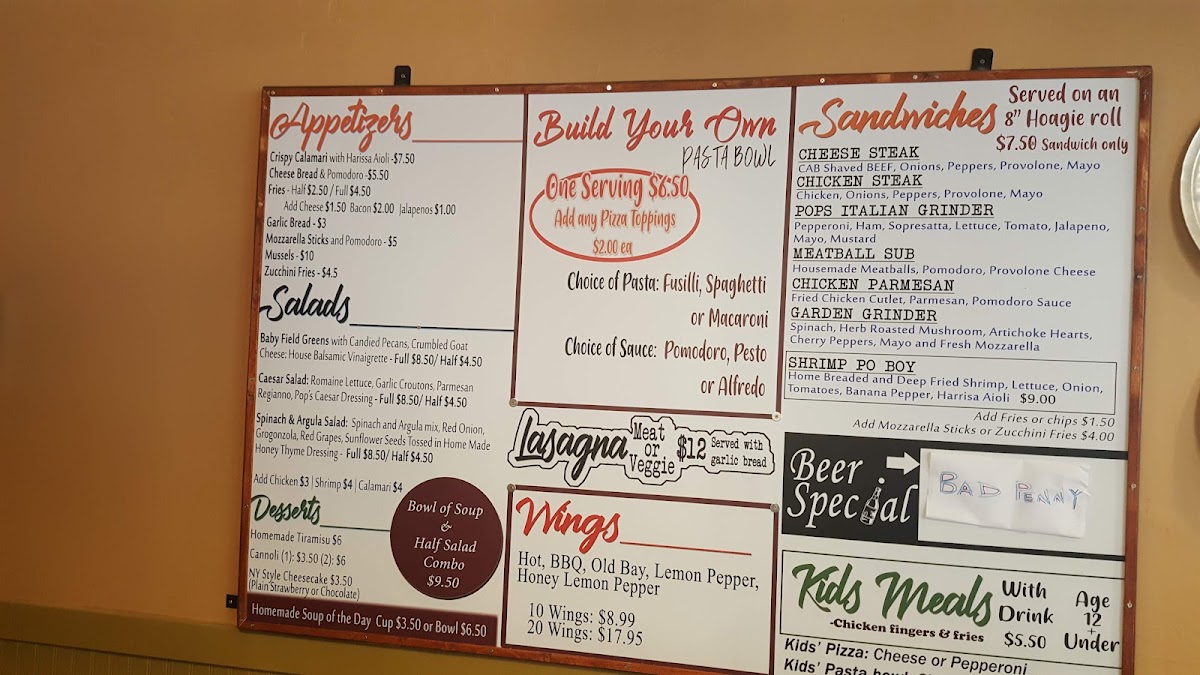 Appetizers
Crispy Calamari with Harissa Aioli -$7.50
Cheese Bread & Pomodoro -$5.50
Fries - Half $2.50 / Full $4.50
Add Cheese $1.50 Bacon $2.00 Jalapenos $1.00
Garlic Bread - $3
Mozzarella Sticks and Pomodoro - $5
Mussels - $10
Zucchini Fries - $4.5
Salads
Baby Field Greens with Candied Pecans, Crumbled Goat
Cheese: House Balsamic Vinaigrette - Full $8.50/ Half $4.50
Caesar Salad: Romaine Lettuce, Garlic Croutons, Parmesan
Regianno, Pop's Caesar Dressing - Full $8.50/ Half $4.50
Spinach & Argula Salad: Spinach and Argula mix, Red Onion,
Grogonzola, Red Grapes, Sunflower Seeds Tossed in Home Made
Honey Thyme Dressing - Full $8.50/ Half $4.50
Add Chicken $3 | Shrimp $4 | Calamari $4
Desserts
Homemade Tiramisu $6
Cannoli (1): $3.50 (2): $6
NY Style Cheesecake $3.50
(Plain Strawberry or Chocolate)
Bowl of Soup
&
Half Salad
Combo
$9.50
Homemade Soup of the Day Cup $3.50 or Bowl $6.50
Build Your Own
PASTA BOWL
One Serving $6.50
Add any Pizza Toppings
$2.00 ea
Choice of Pasta: Fusilli, Spaghetti
or Macaroni
Choice of Sauce: Pomodoro, Pesto
or Alfredo
Lasagna Meat or Veggie $12 Served with garlic bread
Wings
Hot, BBQ, Old Bay, Lemon Pepper,
Honey Lemon Pepper
10 Wings: $8.99
20 Wings: $17.95
Sandwiches
Served on an
8" Hoagie roll
$7.50 Sandwich only
CHEESE STEAK
CAB Shaved BEEF, Onions, Peppers, Provolone, Mayo
CHICKEN STEAK
Chicken, Onions, Peppers, Provolone, Mayo
POPS ITALIAN GRINDER
Pepperoni, Ham, Sopresatta, Lettuce, Tomato, Jalapeno,
Mayo, Mustard
MEATBALL SUB
Housemade Meatballs, Pomodoro, Provolone Cheese
CHICKEN PARMESAN
Fried Chicken Cutlet, Parmesan, Pomodoro Sauce
GARDEN GRINDER
Spinach, Herb Roasted Mushroom, Artichoke Hearts,
Cherry Peppers, Mayo and Fresh Mozzarella
SHRIMP PO BOY
Home Breaded and Deep Fried Shrimp, Lettuce, Onion,
Tomatoes, Banana Pepper, Harrisa Aioli $9.00
Add Fries or chips $1.50
Add Mozzarella Sticks or Zucchini Fries $4.00
Beer
Special
BAD PENNY
Kids Meals
-Chicken fingers & fries
With
Drink
$5.50
Age
12
+
Under
Kids' Pizza: Cheese or Pepperoni
Kids' Pasta bowl